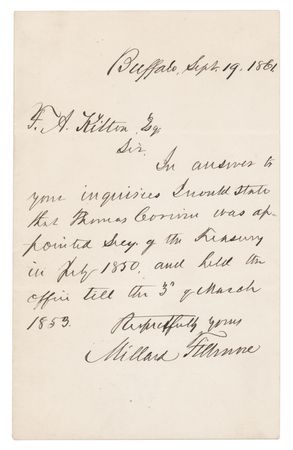 Buffalo, Sept. 19. 1861
F. A. Hilton, Esq.
Sir.
In answer to
your inquiries I would state
that Thomas Corwin was ap-
pointed Secy. of the Treasury
in July 1850, and held the
office till the 3d of March
1853.
Respectfully yours
Millard Fillmore